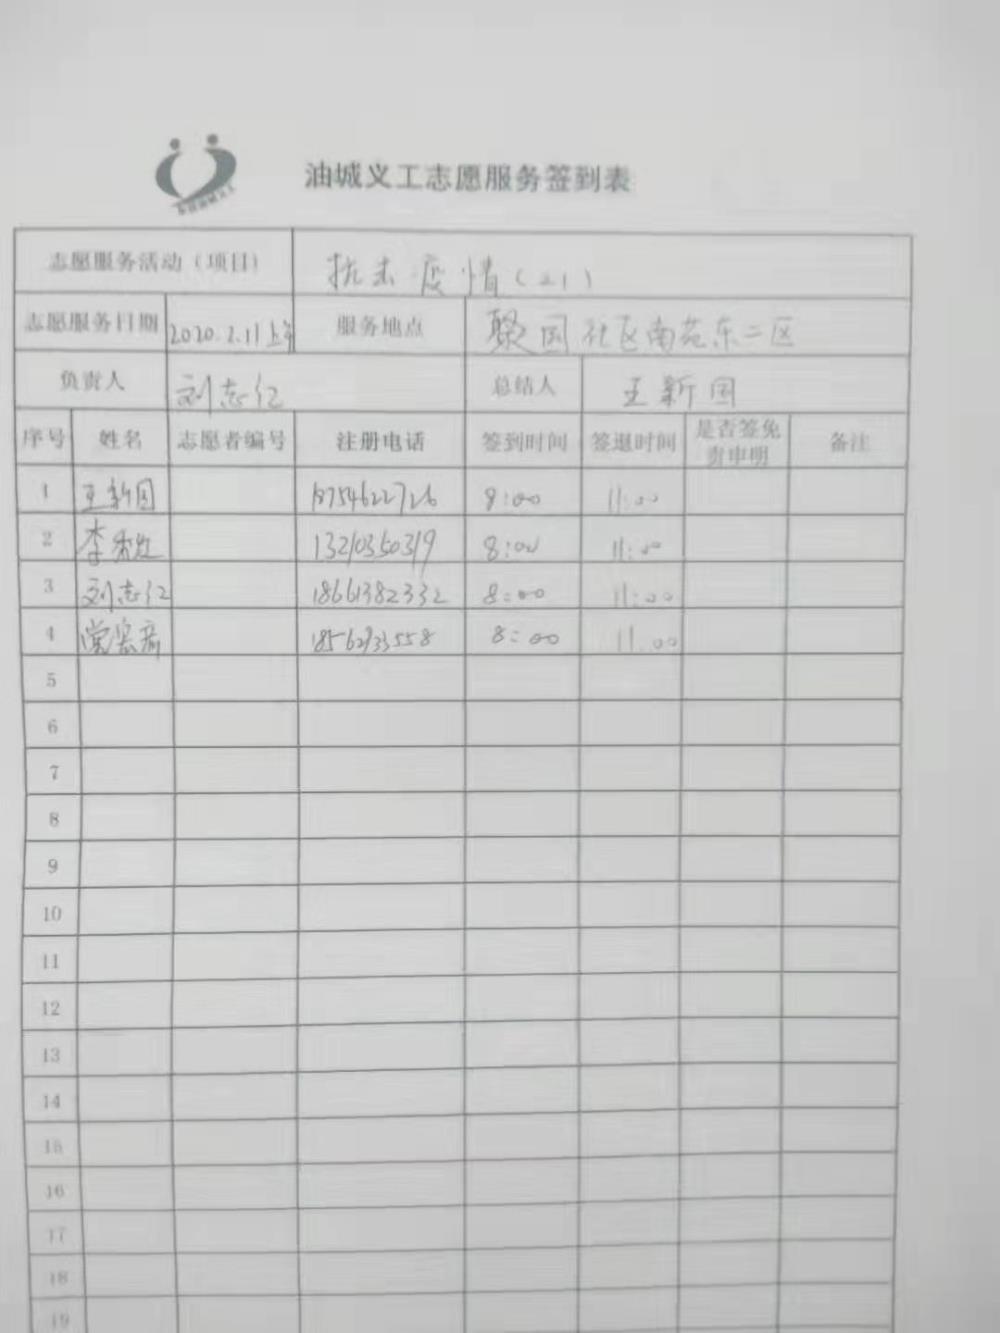 油城义工志愿服务签到表
志愿服务活动（项目） 抗击疫情（21）
志愿服务日期 2020.2.11上午 服务地点 聚园社区南苑东二区
负责人 刘志红 总结人 王新国
序号 姓名 志愿者编号 注册电话 签到时间 签退时间 是否签免责申明 备注
1 王新国 18754622726 8:00 11:00
2 李 13210350319 8:00 11:00
3 刘志红 18661382332 8:00 11:00
4 18562933558 8:00 11:00
5
6
7
8
9
10
11
12
13
14
15
16
17
18
19